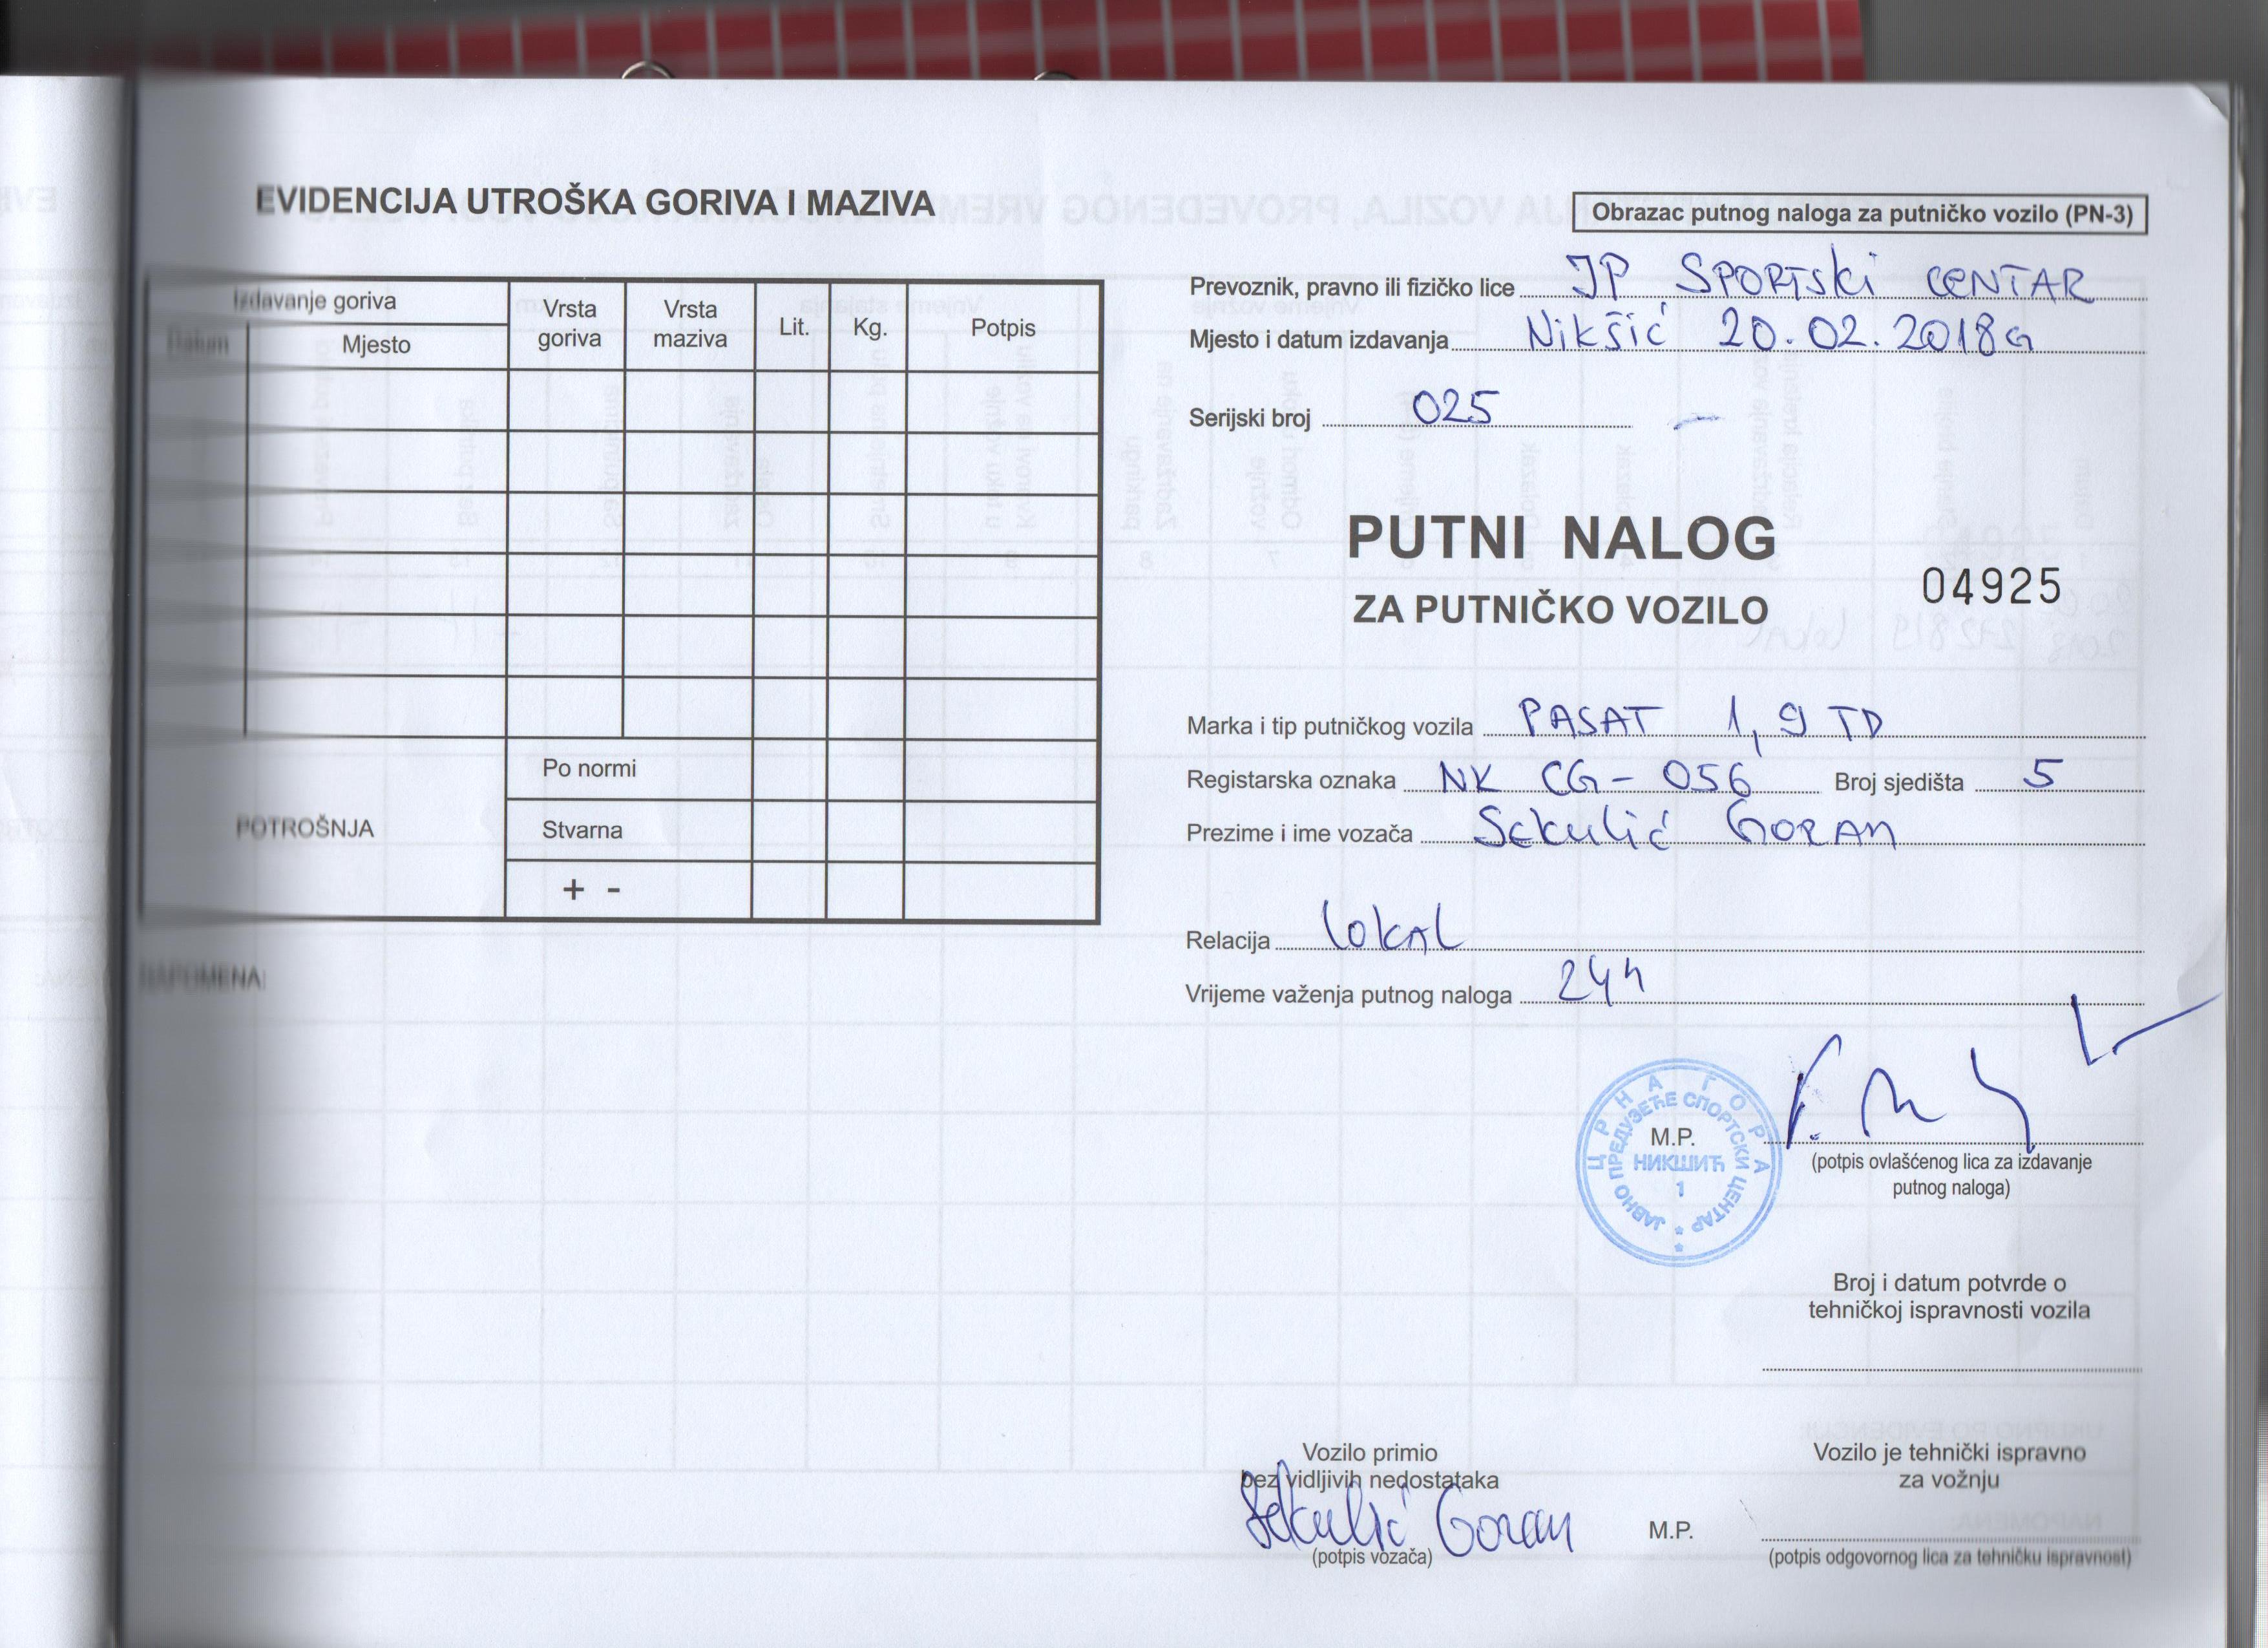 EVIDENCIJA UTROŠKA GORIVA I MAZIVA
Izdavanje goriva
Datum
Mjesto
Vrsta goriva
Vrsta maziva
Lit.
Kg.
Potpis
POTROŠNJA
Po normi
Stvarna
+ -
NAPOMENA:
Obrazac putnog naloga za putničko vozilo (PN-3)
Prevoznik, pravno ili fizičko lice JP SPORTSKI CENTAR
Mjesto i datum izdavanja Nikšić 20.02.2018G
Serijski broj 025
PUTNI NALOG
ZA PUTNIČKO VOZILO
04925
Marka i tip putničkog vozila PASAT 1,9 TD
Registarska oznaka NK CG-056 Broj sjedišta 5
Prezime i ime vozača Sekulić GORAN
Relacija lokAl
Vrijeme važenja putnog naloga 24h
ЦРНА ГОРА
ЈАВНО ПРЕДУЗЕЋЕ СПОРТСКИ ЦЕНТАР
М.P.
НИКШИЋ
1
(potpis ovlašćenog lica za izdavanje
putnog naloga)
Broj i datum potvrde o
tehničkoj ispravnosti vozila
Vozilo primio
bez vidljivih nedostataka
Sekulić Goran
(potpis vozača)
M.P.
Vozilo je tehnički ispravno
za vožnju
(potpis odgovornog lica za tehničku ispravnost)